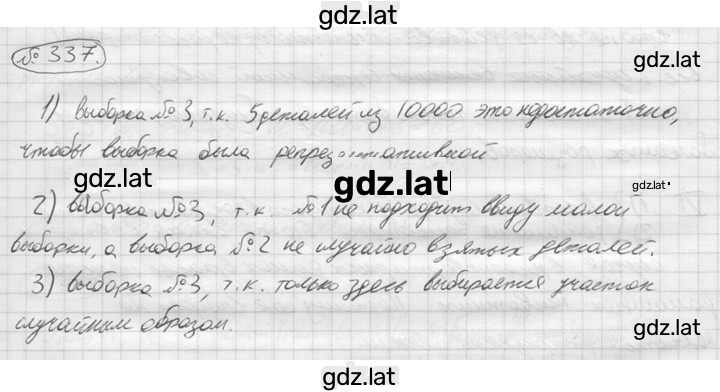 gdz.lat
№ 337.
gdz.lat
1) выборка № 3, т.к. 5 деталей из 10000 это недостаточно,
чтобы выборка была репрезентативной
gdz.lat
gdz.lat
gdz.lat
2) выборка №3, т.к. №1 не подходит ввиду малой
выборки, а выборка №2 не случайно взятых деталей.
3) выборка №3, т.к. только здесь выбирается участок
случайным образом.
gdz.lat
gdz.lat